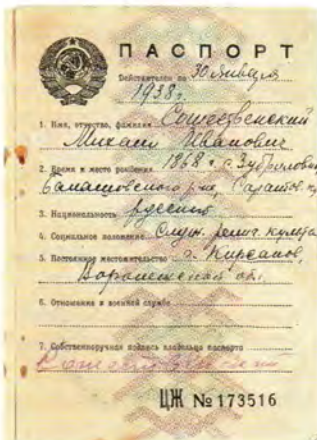 ПАСПОРТ
Действителен по 30 января
1938 г.
1. Имя, отчество, фамилия Сошественский
Михаил Иванович
2. Время и место рождения 1868 г. с. Зубриловка
Балашовского р-на, Саратов. кр
3. Национальность русский
4. Социальное положение Служ. религ. культа
5. Постоянное местожительство г. Кирсанов,
Воронежской обл.
6. Отношение к военной службе
7. Собственноручная подпись владельца паспорта
ЦЖ № 173516